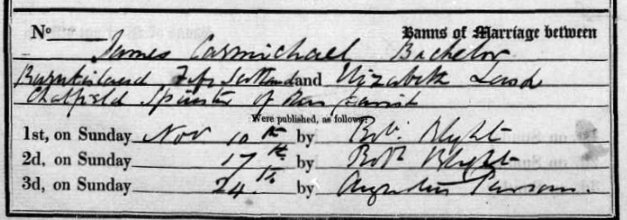 No Banns of Marriage between
James Carmichael Bachelor
Burntisland Fife Scotland and Elizabeth
Chatfield Spinster of this Parish
Were published, as follow:
1st, on Sunday Nov 10th by Robt. Blyght
2d, on Sunday 17th by Robt Blyght
3d, on Sunday 24th by Augustus Parsons.